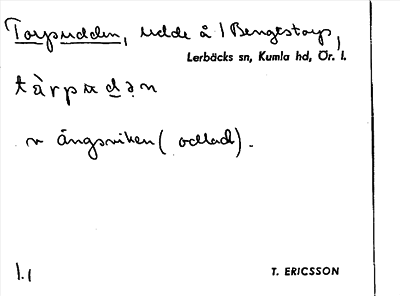 Torpudden, udde å 1 Bengtstorp,
Lerbäcks sn, Kumla hd, Ör. l.
tàrpudən
v ängsviken (odlad).
T. ERICSSON